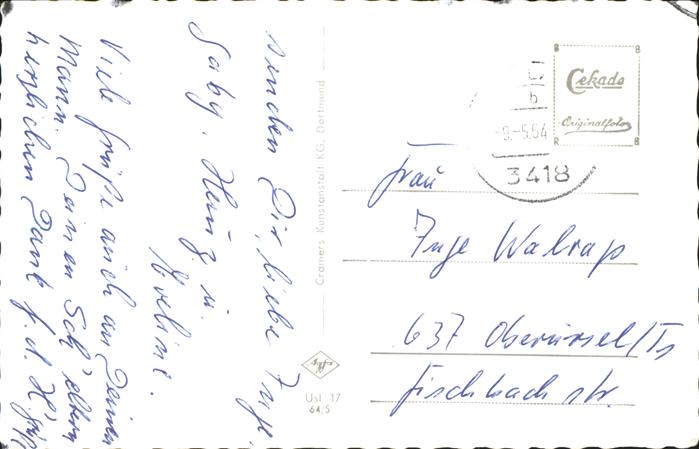 senden Dir, liebe Inge,
Gaby, Heinz u.
Eveline.
Viele Grüße auch an Deinen
Mann. Deinen Sch'eltern
herzlichen Dank f. d. H'grüße
Cramers Kunstanstalt KG, Dortmund
Agfa
Usl 17
64/5
Cekade
Originalfoto
B B
R B
b
-9.-5.64
3418
Frau
Inge Walrap
637 Oberursel/Ts
Fischbach str.